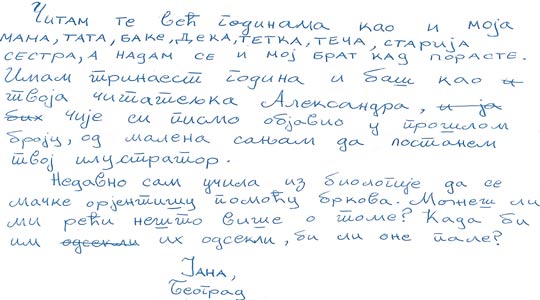 Читам те већ годинама као и моја
мама, тата, баке, дека, тетка, теча, старија
сестра, а надам се и мој брат кад порасте.
Имам тринаест година и баш као и
твоја читатељка Александра, и ја
бих чије си писмо објавио у прошлом
броју, од малена сањам да постанем
твој илустратор.
Недавно сам учила из биологије да се
мачке орјентишу помоћу бркова. Можеш ли
ми рећи нешто више о томе? Када би
им одсекли их одсекли, би ли оне пале?
Јана,
Београд